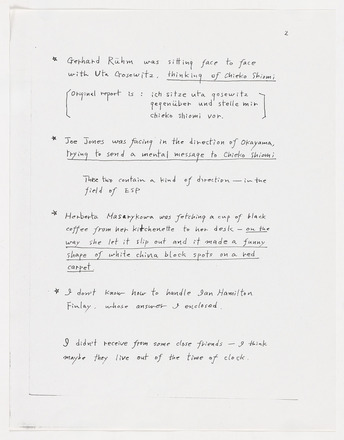 2
* Gerhard Rühm was sitting face to face
with Uta Gosewitz. thinking of Chieko Shiomi
(Original report is : ich sitze uta gosewitz
gegenüber und stelle mir
chieko shiomi vor.)
* Joe Jones was facing in the direction of Okayama,
trying to send a mental message to Chieko Shiomi
These two contain a kind of direction — in the
field of ESP
* Herberta Masarykowa was fetching a cup of black
coffee from her kitchenette to her desk — on the
way she let it slip out and it made a funny
shape of white china black spots on a red
carpet.
* I don't know how to handle Ian Hamilton
Finlay. whose answer I enclosed.
I didn't receive from some close friends — I think
maybe they live out of the time of clock.